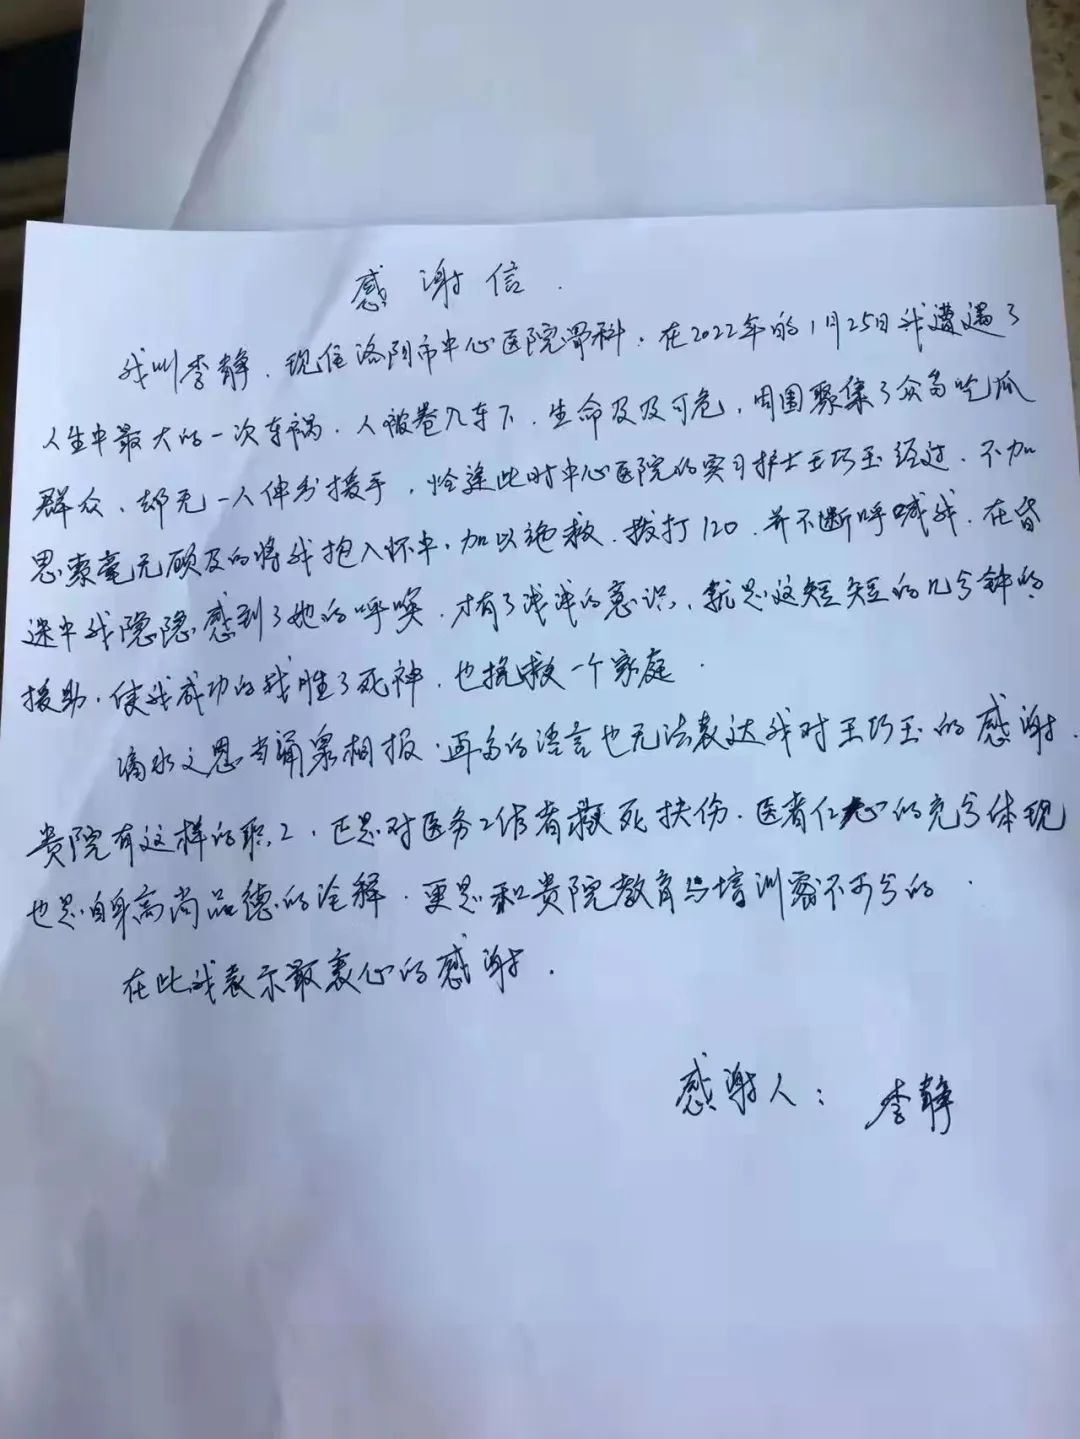 感谢信.
我叫李静、现住洛阳市中心医院骨科、在2022年的1月25日我遭遇了
人生中最大的一次车祸、人被卷入车下、生命及及可危，周围聚集了众多吃瓜
群众、却无一人伸出援手，恰逢此时中心医院的实习护士王巧玉经过、不加
思索毫无顾及的将我抱入怀中、加以施救、拨打120、并不断呼喊我、在昏
迷中我隐隐感到了她的呼唤、才有了浅浅的意识、就是这短短的几分钟的
援助、使我成功的战胜了死神、也挽救一个家庭.
滴水之恩当涌泉相报、再多的语言也无法表达我对王巧玉的感谢.
贵院有这样的职工、正是对医务工作者救死扶伤、医者仁心的充分体现
也是自身高尚品德的诠释、更是和贵院教育与培训密不可分的.
在此我表示最衷心的感谢.
感谢人：李静